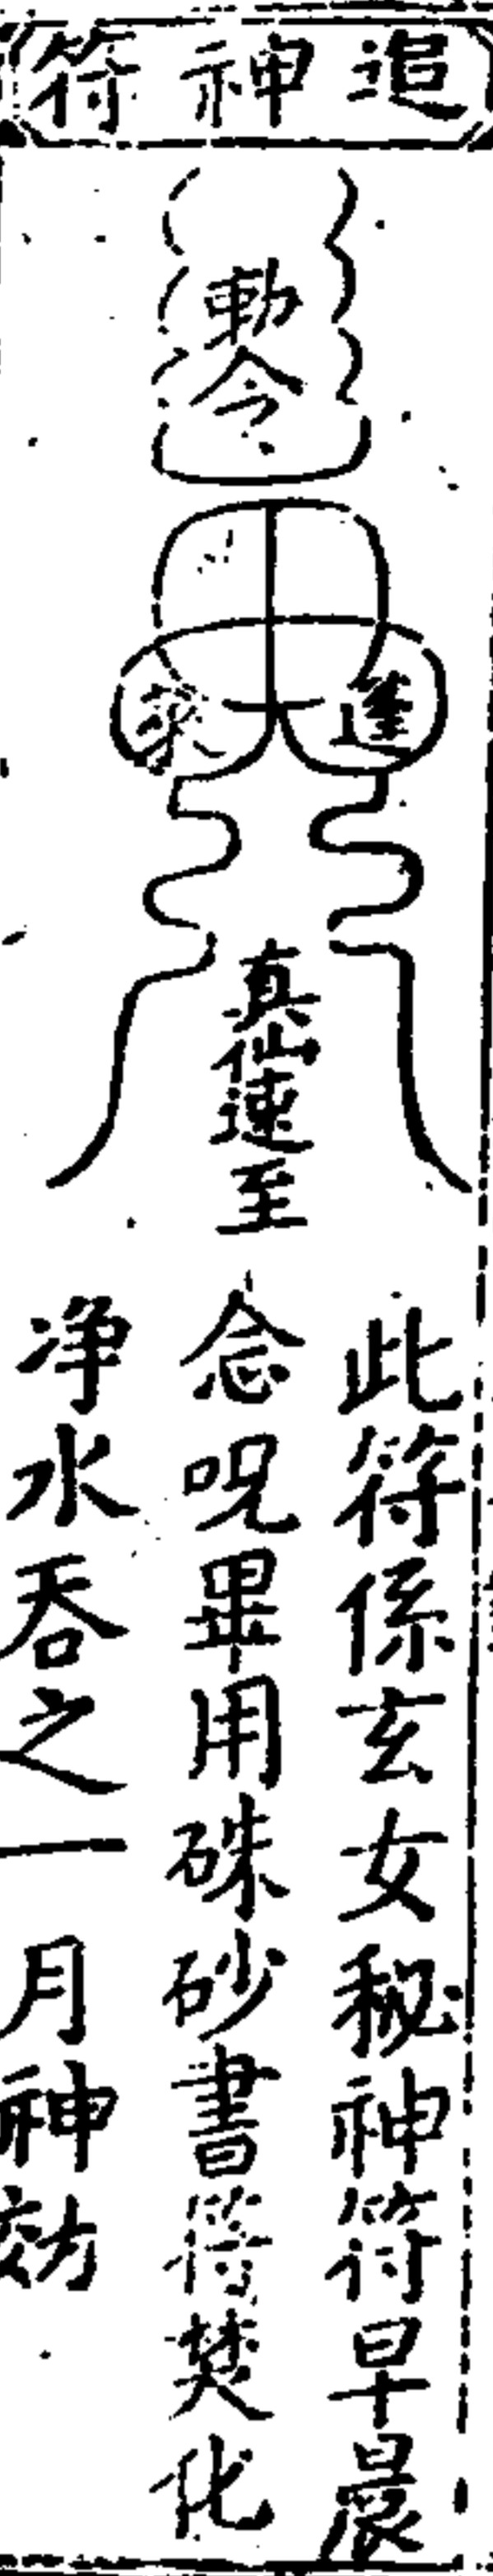 追神符
勅令
蓬
萊
真仙速至
此符係玄女秘神符早晨
念呪畢用硃砂書符焚化
净水吞之一月神効